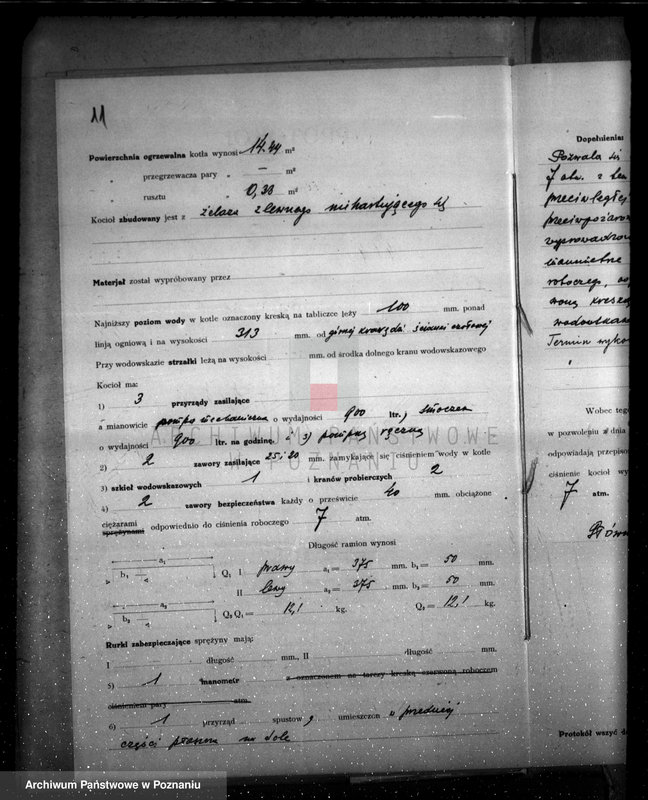 11
Powierzchnia ogrzewalna kotła wynosi 14.44 m²
" przegrzewacza pary " — m²
" rusztu " 0,33 m²
Kocioł zbudowany jest z żelaza zlewnego
Materjał został wypróbowany przez
Najniższy poziom wody w kotle oznaczony kreską na tabliczce leży 100 mm. ponad
linją ogniową i na wysokości 313 mm. od górnej krawędzi ścianki czołowej
Przy wodowskazie strzałki leżą na wysokości mm. od środka dolnego kranu wodowskazowego
Kocioł ma:
1) 3 przyrządy zasilające
a mianowicie pompa mechaniczna o wydajności 900 ltr., smoczek
o wydajności 900 ltr. na godzinę. i 3) pompa ręczna
2) 2 zawory zasilające 25 i 20 mm. zamykające się ciśnieniem wody w kotle
3) szkieł wodowskazowych 1 i kranów probierczych 2
4) 2 zawory bezpieczeństwa każdy o prześwicie 40 mm. obciążone
ciężarami
sprężynami odpowiednio do ciśnienia roboczego 7 atm.
Długość ramion wynosi
a₁
b₁
Q₁ I prawy a₁ = 375 mm. b₁ = 50 mm.
II lewy a₂ = 375 mm. b₂ = 50 mm.
a₂
b₂
Q₂ Q₁ = 12,1 kg. Q₂ = 12,1 kg.
Rurki zabezpieczające sprężyny mają:
I długość mm., II długość mm.
5) 1 manometr z oznaczonem na tarczy kreską czerwoną roboczem
ciśnieniem pary atm.
6) 1 przyrząd spustow, umieszczon w przedniej
części płaszcza na dole
Dopełnienia:
Pozwala się
7 atm. z
przeciwległej
przeciwpożarow
wyprowadzon
roboczego,
kreską
wodowskaz
Termin wyko
Wobec teg
w pozwoleniu z dnia
odpowiadają przepiso
ciśnienie kocioł wy
7 atm.
Protokół wszyć d
ARCHIWUM PAŃSTWOWE
W POZNANIU
Archiwum Państwowe w Poznaniu